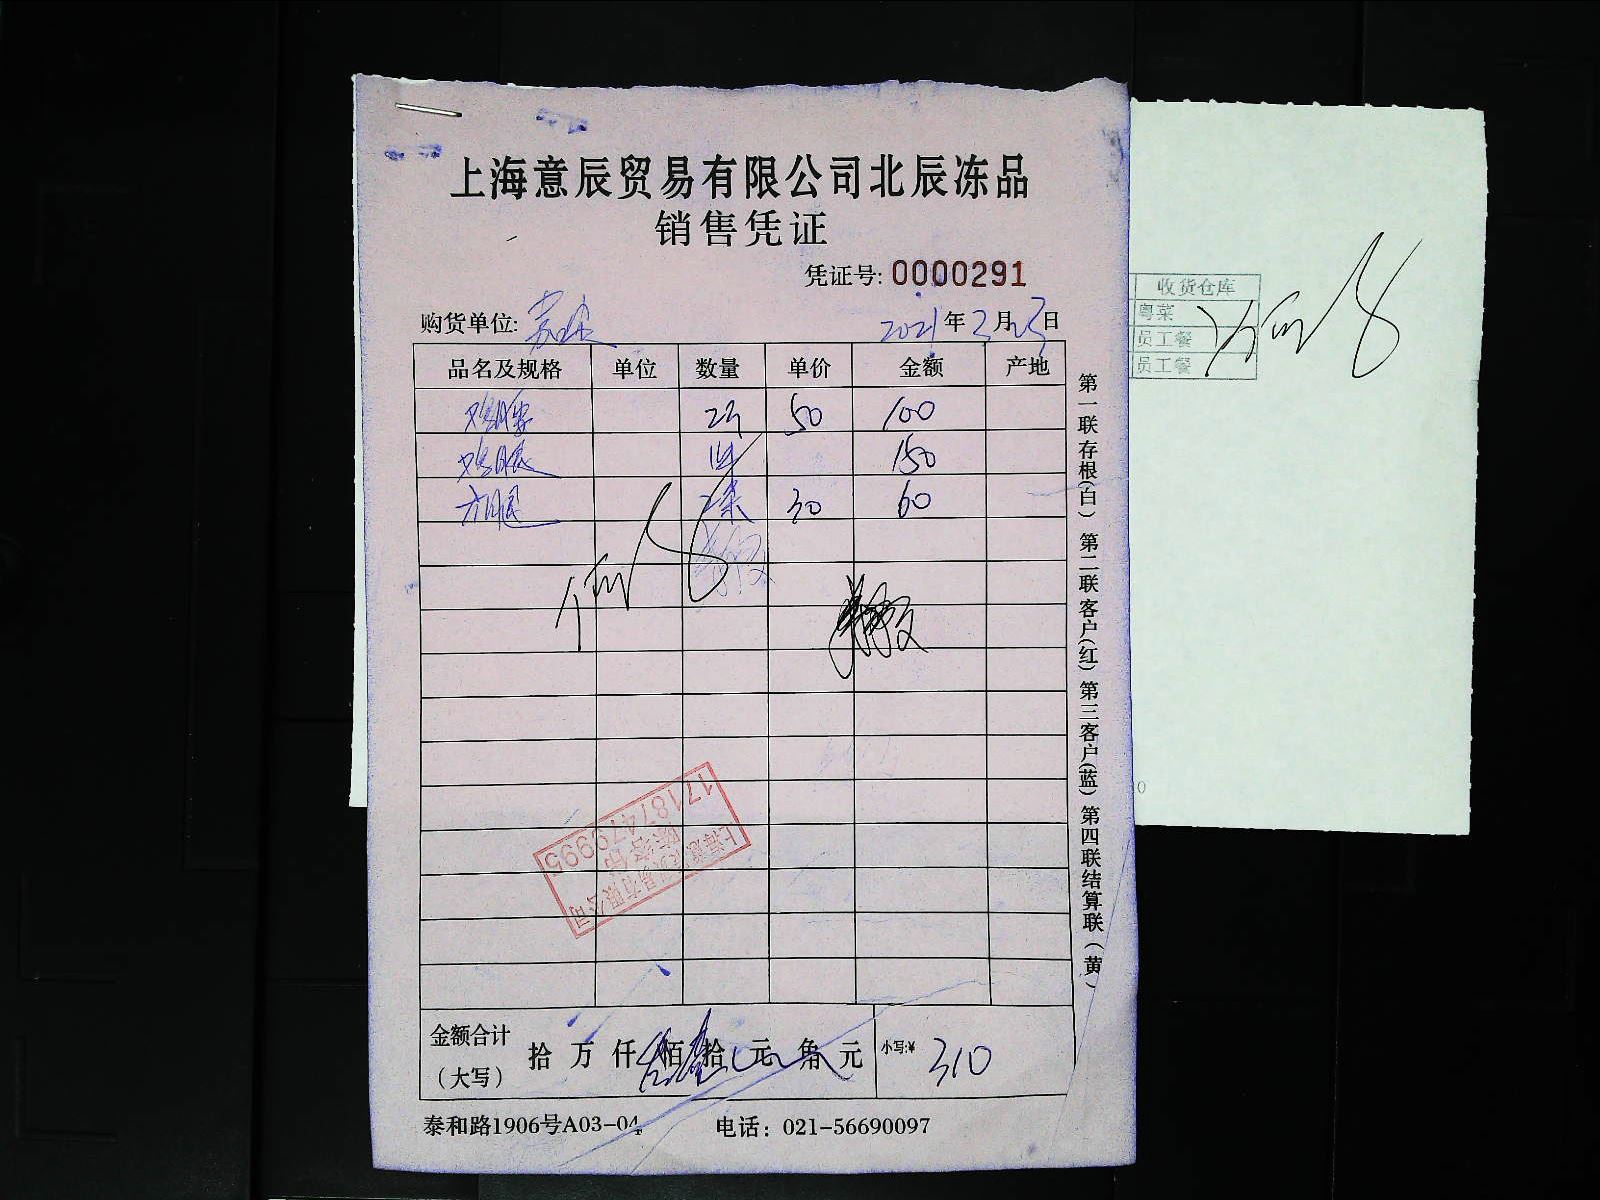 上海意辰贸易有限公司北辰冻品
销售凭证
凭证号: 0000291
购货单位: 2021年2月25日
品名及规格 单位 数量 单价 金额 产地
50 100
150
方腿 2条 30 60
金额合计(大写) 拾 万 仟 佰 拾 元 角 元 小写:¥ 310
泰和路1906号A03-04 电话: 021-56690097
第一联存根(白) 第二联客户(红) 第三客户(蓝) 第四联结算联(黄)
17187479995
上海意辰贸易有限公司
收货仓库
粤菜
员工餐
员工餐
0